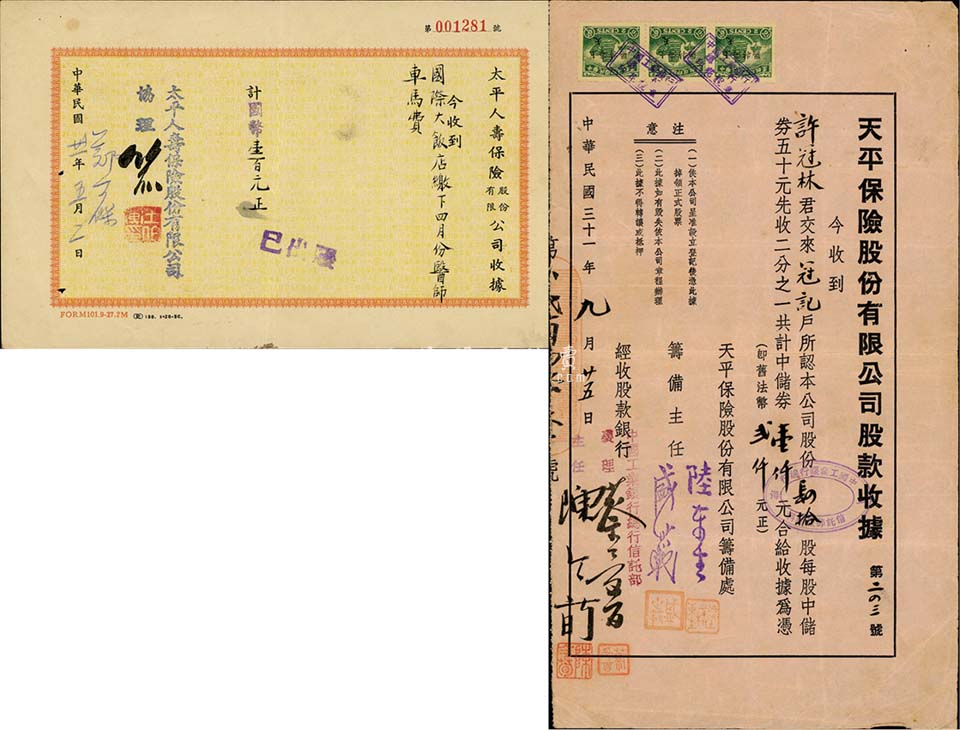 第 001281 號
太平人壽保險股份有限公司收據
今收到
國際大飯店繳下四月份醫師
車馬費
計國幣壹百元正
已出賬
太平人壽保險股份有限公司
協理
中華民國卅一年五月二日
FORM101.9-27.2M
天平保險股份有限公司股款收據 第二〇三號
今收到
許冠林君交來冠記戶所認本公司股份肆拾股每股中儲
券五十元先收二分之一共計中儲券壹仟元合給收據爲憑
(即舊法幣貳仟元正)
天平保險股份有限公司籌備處
籌備主任
經收股款銀行
中國工業銀行總行信託部
經理
主任
注意
(一)俟本公司呈准設立登記後憑此據
掉領正式股票
(二)此據如有毀失依本公司章程辦理
(三)此據不得轉讓或抵押
中華民國三十一年九月廿五日